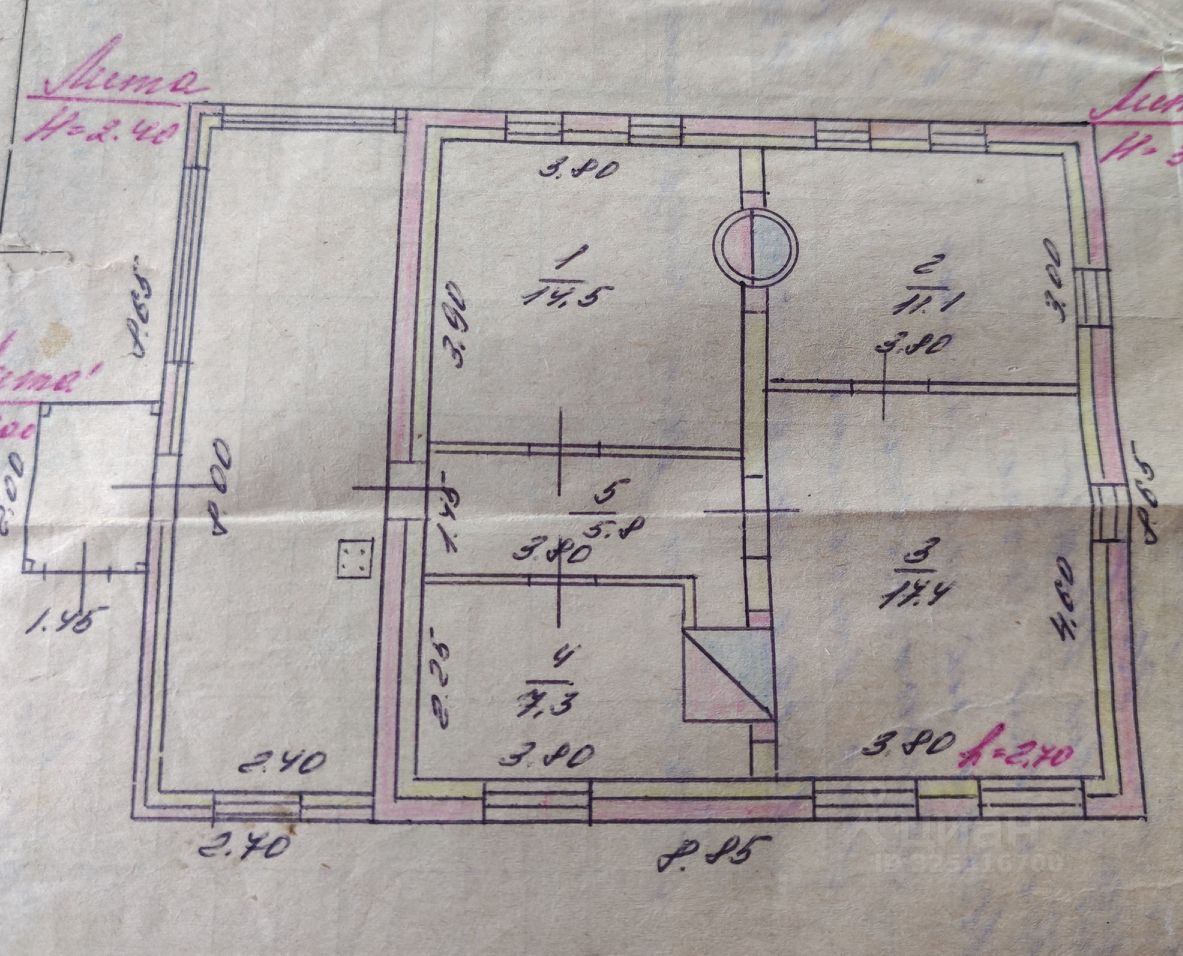 Лит а
H=2.40
Лит
H=3
3.80
1
14.5
3.90
2
11.1
3.00
3.80
8.65
Лит а'
2.00
8.00
1.45
5
5.8
3.80
3
17.4
8.65
4.60
1.45
2.25
4
7.3
3.80
2.40
3.80
h=2.70
2.70
8.85
Циан